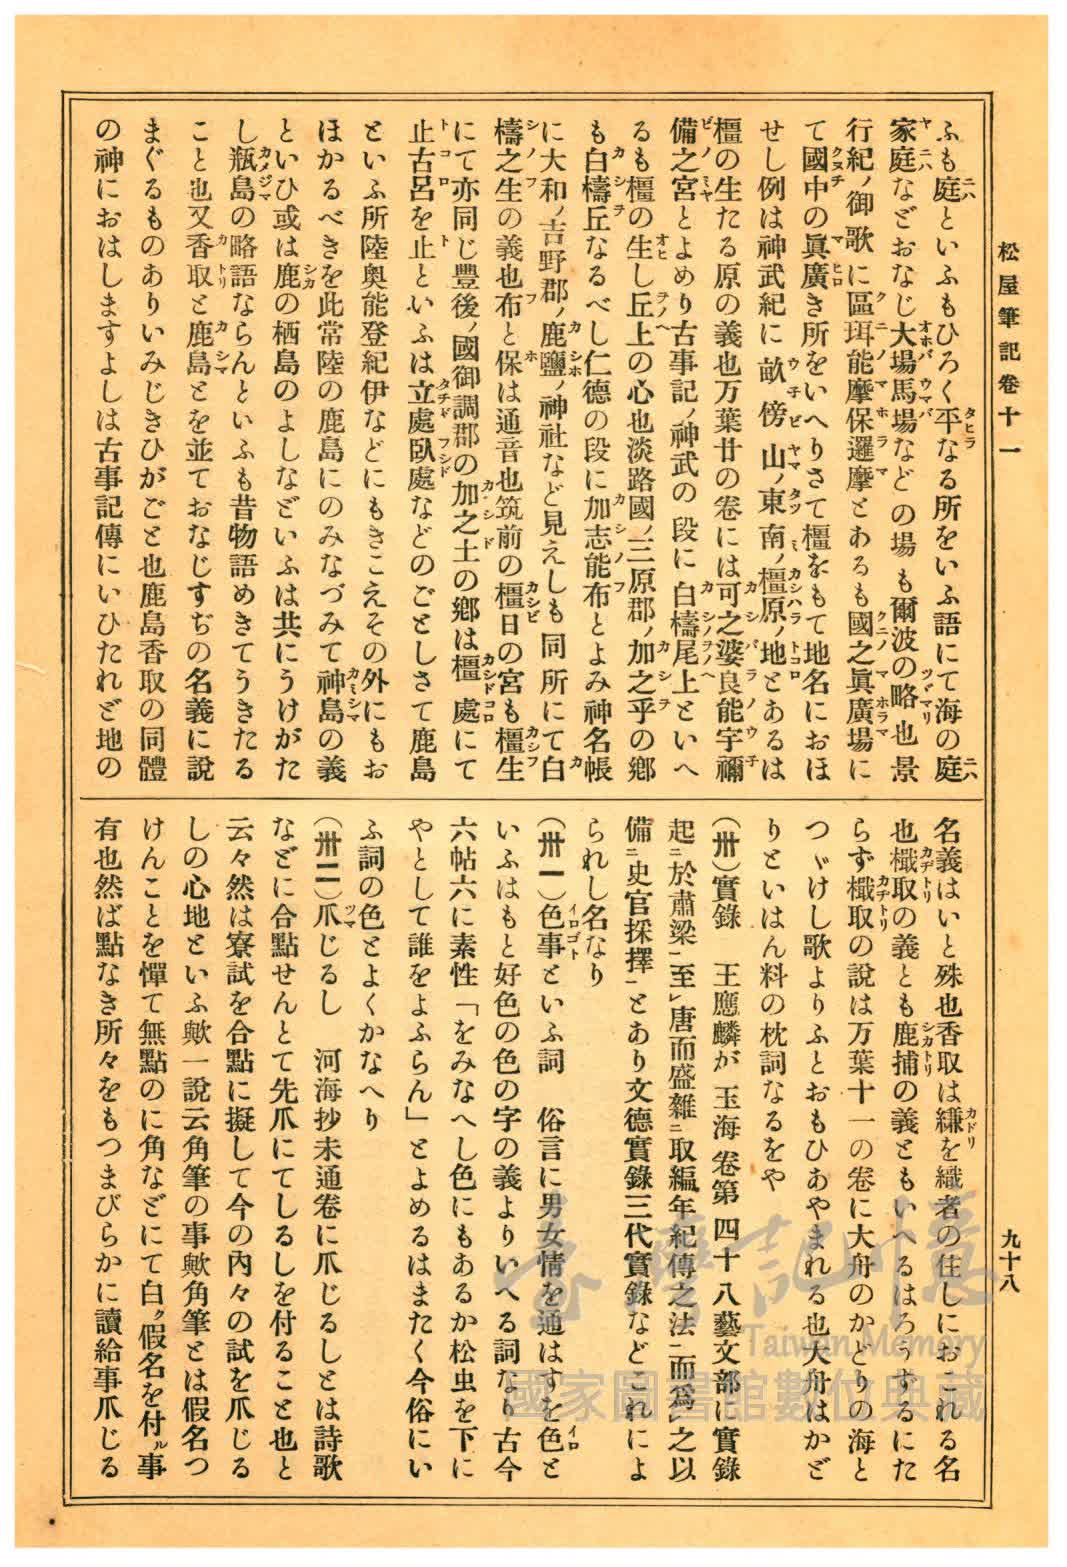 松屋筆記卷十一
九十八
ふも庭といふもひろく平なる所をいふ語にて海の庭
家庭などおなじ大場馬場などの場も爾波の略也景
行紀ノ御歌に區珥能摩保邏摩とあるも國之眞廣場に
て國中の眞廣き所をいへりさて橿をもて地名におほ
せし例は神武紀に畝傍山ノ東南ノ橿原ノ地とあるは
橿の生たる原の義也万葉廿の卷には可之婆良能宇禰
備之宮とよめり古事記ノ神武の段に白檮尾上といへ
るも橿の生し丘上の心也淡路國ノ三原郡ノ加之乎の鄕
も白檮丘なるべし仁德の段に加志能布とよみ神名帳
に大和ノ吉野郡ノ鹿鹽ノ神社など見えしも同所にて白
檮之生の義也布と保は通音也筑前の橿日の宮も橿生
にて亦同じ豐後ノ國御調郡の加之土の鄕は橿處にて
止古呂を止といふは立處臥處などのごとしさて鹿島
といふ所陸奥能登紀伊などにもきこえその外にもお
ほかるべきを此常陸の鹿島にのみなづみて神島の義
といひ或は鹿の栖島のよしなどいふは共にうけがた
し瓶島の略語ならんといふも昔物語めきてうきたる
こと也又香取と鹿島とを並ておなじすぢの名義に說
まぐるものありいみじきひがごと也鹿島香取の同體
の神におはしますよしは古事記傳にいひたれど地の
名義はいと殊也香取は縑を織者の住しにおこれる名
也檝取の義とも鹿捕の義ともいへるはろうずるにた
らず檝取の說は万葉十一の卷に大舟のかどりの海と
つゞけし歌よりふとおもひあやまれる也大舟はかど
りといはん料の枕詞なるをや
(卅)實錄　王應麟が玉海卷第四十八藝文部に實錄
起ニ於肅梁一至レ唐而盛雜ニ取編年紀傳之法ニ而爲レ之以
備ニ史官採擇一とあり文德實錄三代實錄などこれによ
られし名なり
(卅一)色事といふ詞　俗言に男女情を通はすを色と
いふはもと好色の色の字の義よりいへる詞なり古今
六帖六に素性「をみなへし色にもあるか松虫を下に
やとして誰をよふらん」とよめるはまたく今俗にい
ふ詞の色とよくかなへり
(卅二)爪じるし　河海抄未通卷に爪じるしとは詩歌
などに合點せんとて先爪にてしるしを付ること也と
云々然は寮試を合點に擬して今の內々の試を爪じる
しの心地といふ歟一說云角筆の事歟角筆とは假名つ
けんことを憚て無點のに角などにて白ク假名を付ル事
有也然ば點なき所々をもつまびらかに讀給事爪じる
臺灣記憶
Taiwan Memory
國家圖書館數位典藏